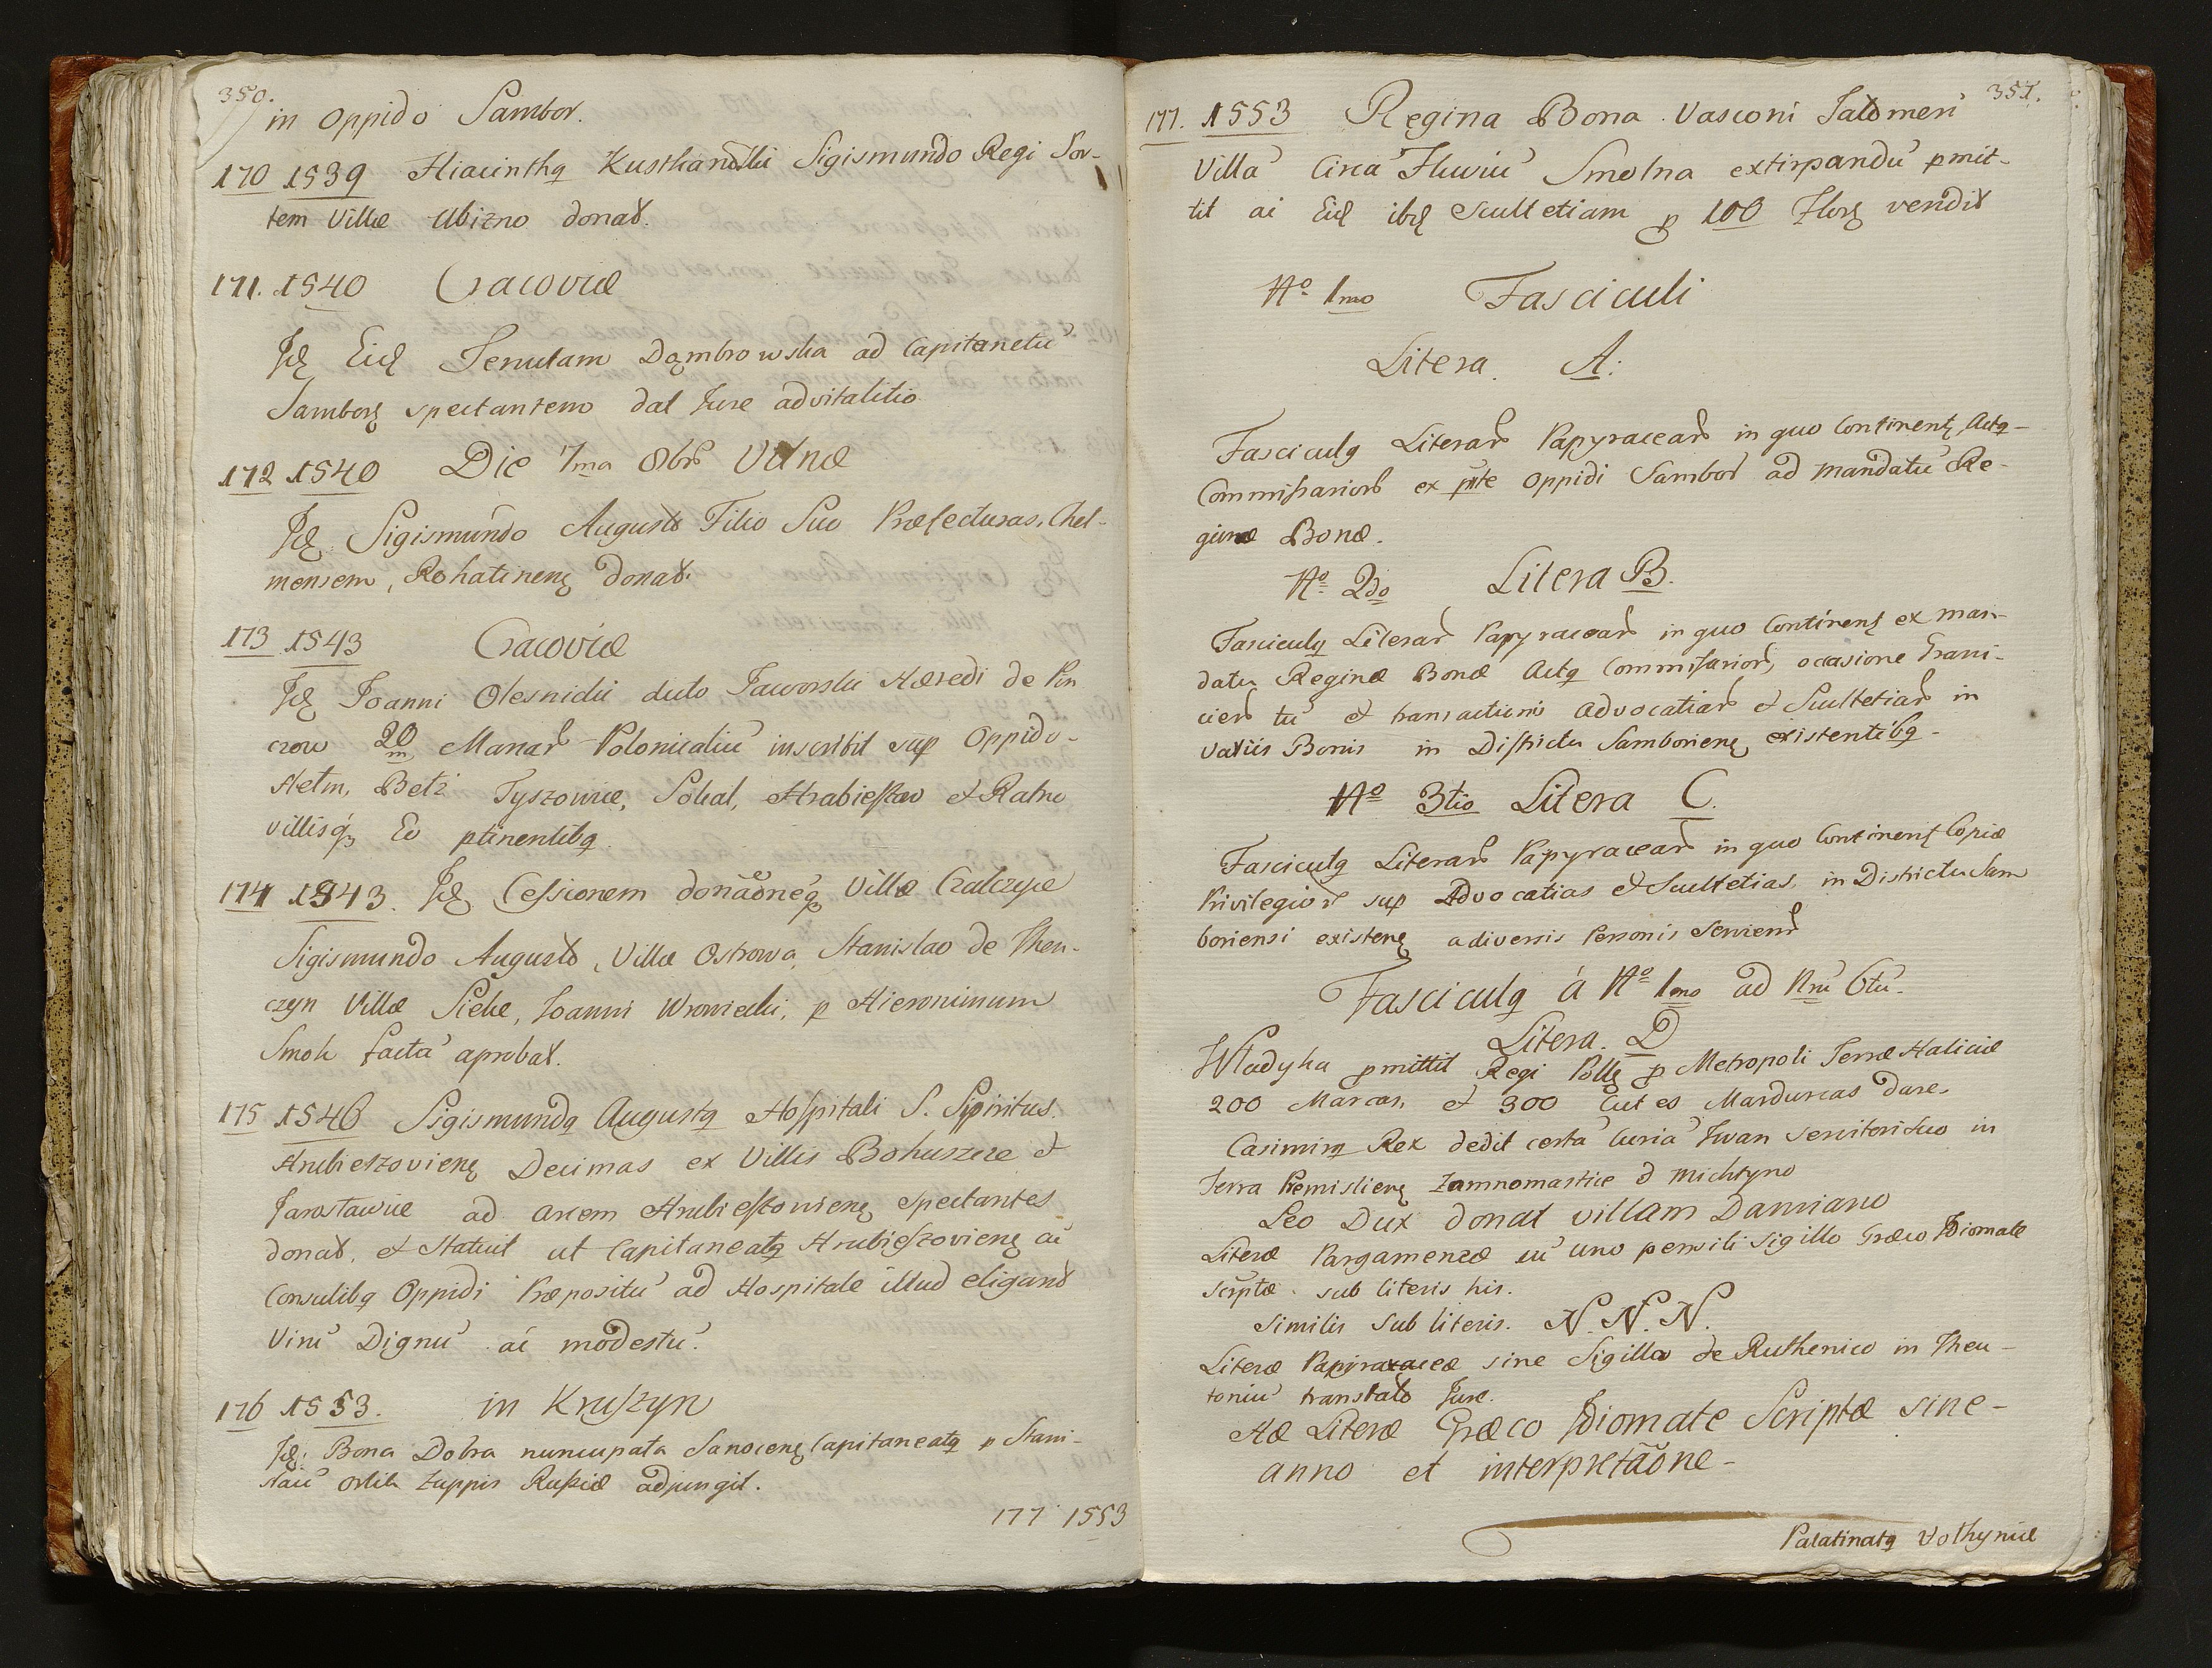 350.
in Oppido Sambor.
170 1539 Hiacinthq Kusthanoski Sigismundo Regi Sor-
tem Villæ Ubizno donat.
171. 1540 Cracoviæ
Jdę Eidę Tenutam Dąmbrowska ad Capitanetū
Samborę spectantem dat Jure advitalitio
172 1540 Die 7ma 8br Vilnæ
Jdę Sigismundo Augusto Filio Suo Præfecturas, Chel-
mensem, Rohatinenę donat.
173 1543 Cracoviæ
Jdę Joanni Olesnicki dicto Jaworski Hæredi de Pin
czow 20 m Marcar Polonicaliū inscribit sup Oppido-
Hetm, Betz Tyszowce, Sokal, Hrabieszow et Ratno
villisq Eo ptinentibq
174 1543. Jdę Cessionem donãoneq Villæ Czalczyce
Sigismundo Augusto, Villæ Ostrowa, Stanislao de Then-
czyn Villæ Sielce, Joanni Wroniecki, p Hieronimum
Smok factā aprobat.
175 1546 Sigismundq Augustq Hospitali S. Spiritus.
Hrubieszovienę Decimas ex Villis Bohuszcze et
Jarosławice ad arcem Hrubieszovienę spectantes
donat, et Statuit ut Capitaneatq Hrubieszovienę ac̄
Consulibq Oppidi Præpositū ad Hospitale illud eligant
Virū Dignū ac̄ modestū.
176 1553. in Kruszyn
Jdę: Bona Dobra nuncupata Sanocenę Capitaneatq p Stani-
slaū Orlik Zuppis Russiæ adjungit.
177 1553
351.
177. 1553 Regina Bona Vasconi Jatomeri
Villā Circa Fluviū Smolna extirpandū pmit-
tit ac̄ Eidę ibidę Scultetiam p 100 Florę vendit
No 1mo Fasciculi
Litera A:
Fasciculq Literar Papyracear in quo Continentę Actq-
Commissarior ex pte Oppidi Sambor ad mandatū Re-
ginæ Bonæ.
No 2do Litera B.
Fasciculq Literar Papyracear in quo Continentę ex man-
datu Reginæ Bonæ Actq Commissarior, occasione Grani-
cier tū et transactionis Advocatiar et Scultetiar in
variis Bonis in Districtu Samborienę existentibq-
No 3tio Litera C.
Fasciculq Literar Papyracear in quo Continentę Copiæ
Privilegior sup Advocatias et Scultetias, in Districtu Sam
boriensi existenę a diversis Personis Servient
Fasciculq á No 1mo ad Nrū 6tū.
Litera. D
Wladyka pmittit Regi Pollę p Metropoli Terræ Haliciæ
200 Marcas, et 300 Cutes Mardurcas dare.
Casimirq Rex dedit certā Curiā Iwan Servitori Suo in
Terra Premislienę Zamnomastice d Michtyno
Leo Dux donat villam Damiano
Literæ Pargameneæ cū uno pensili Sigillo Græco Idiomate
Scriptæ sub literis his.
Similis sub literis. N. N. N.
Literæ Papyraceæ sine Sigillo de Ruthenico in Theu-
tonicū translato Jure.
Hæ Literæ Græco Idiomate Scriptæ sine-
anno et interpretãone-
Palatinatq Volhyniæ